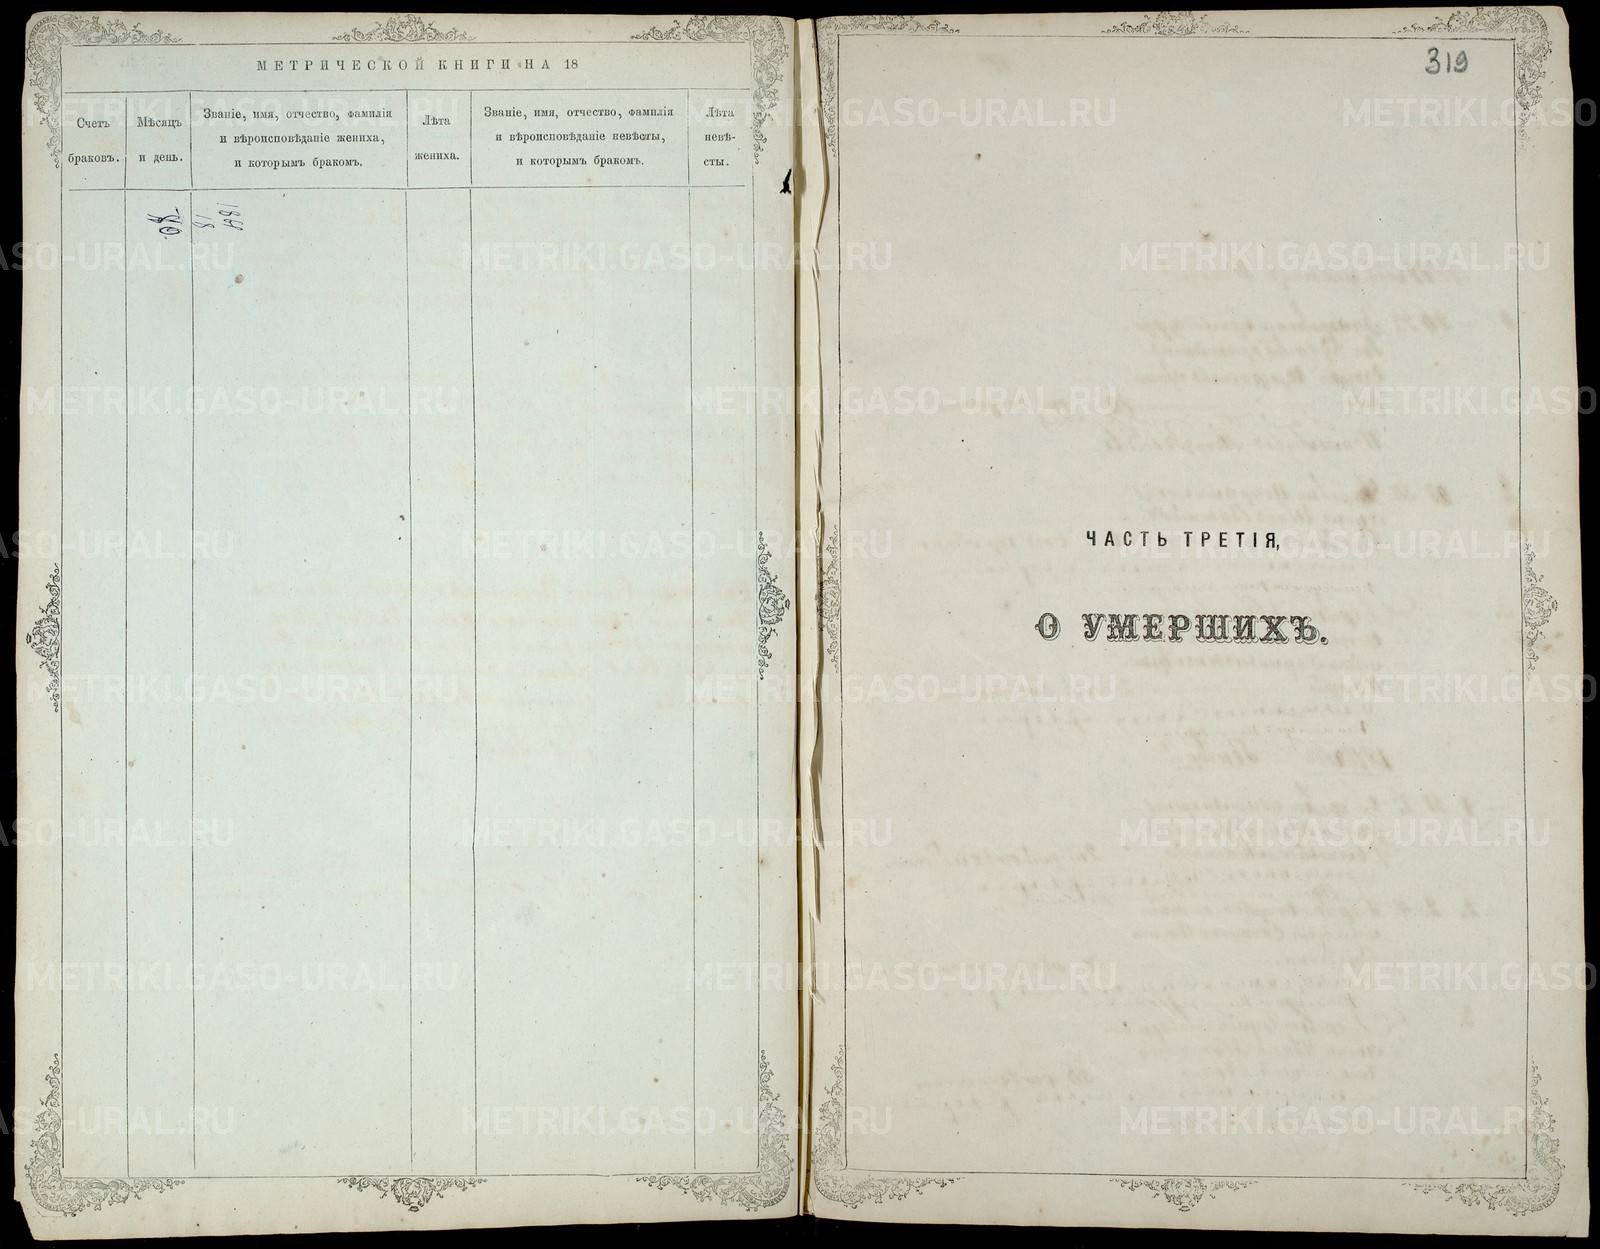 МЕТРИЧЕСКОЙ КНИГИ НА 18
Счетъ
браковъ.
Мѣсяцъ
и день.
Званіе, имя, отчество, фамилія
и вѣроисповѣданіе жениха,
и которымъ бракомъ.
Лѣта
жениха.
Званіе, имя, отчество, фамилія
и вѣроисповѣданіе невѣсты,
и которымъ бракомъ.
Лѣта
невѣ-
сты.
319
ЧАСТЬ ТРЕТІЯ,
О УМЕРШИХЪ.
METRIKI.GASO-URAL.RU